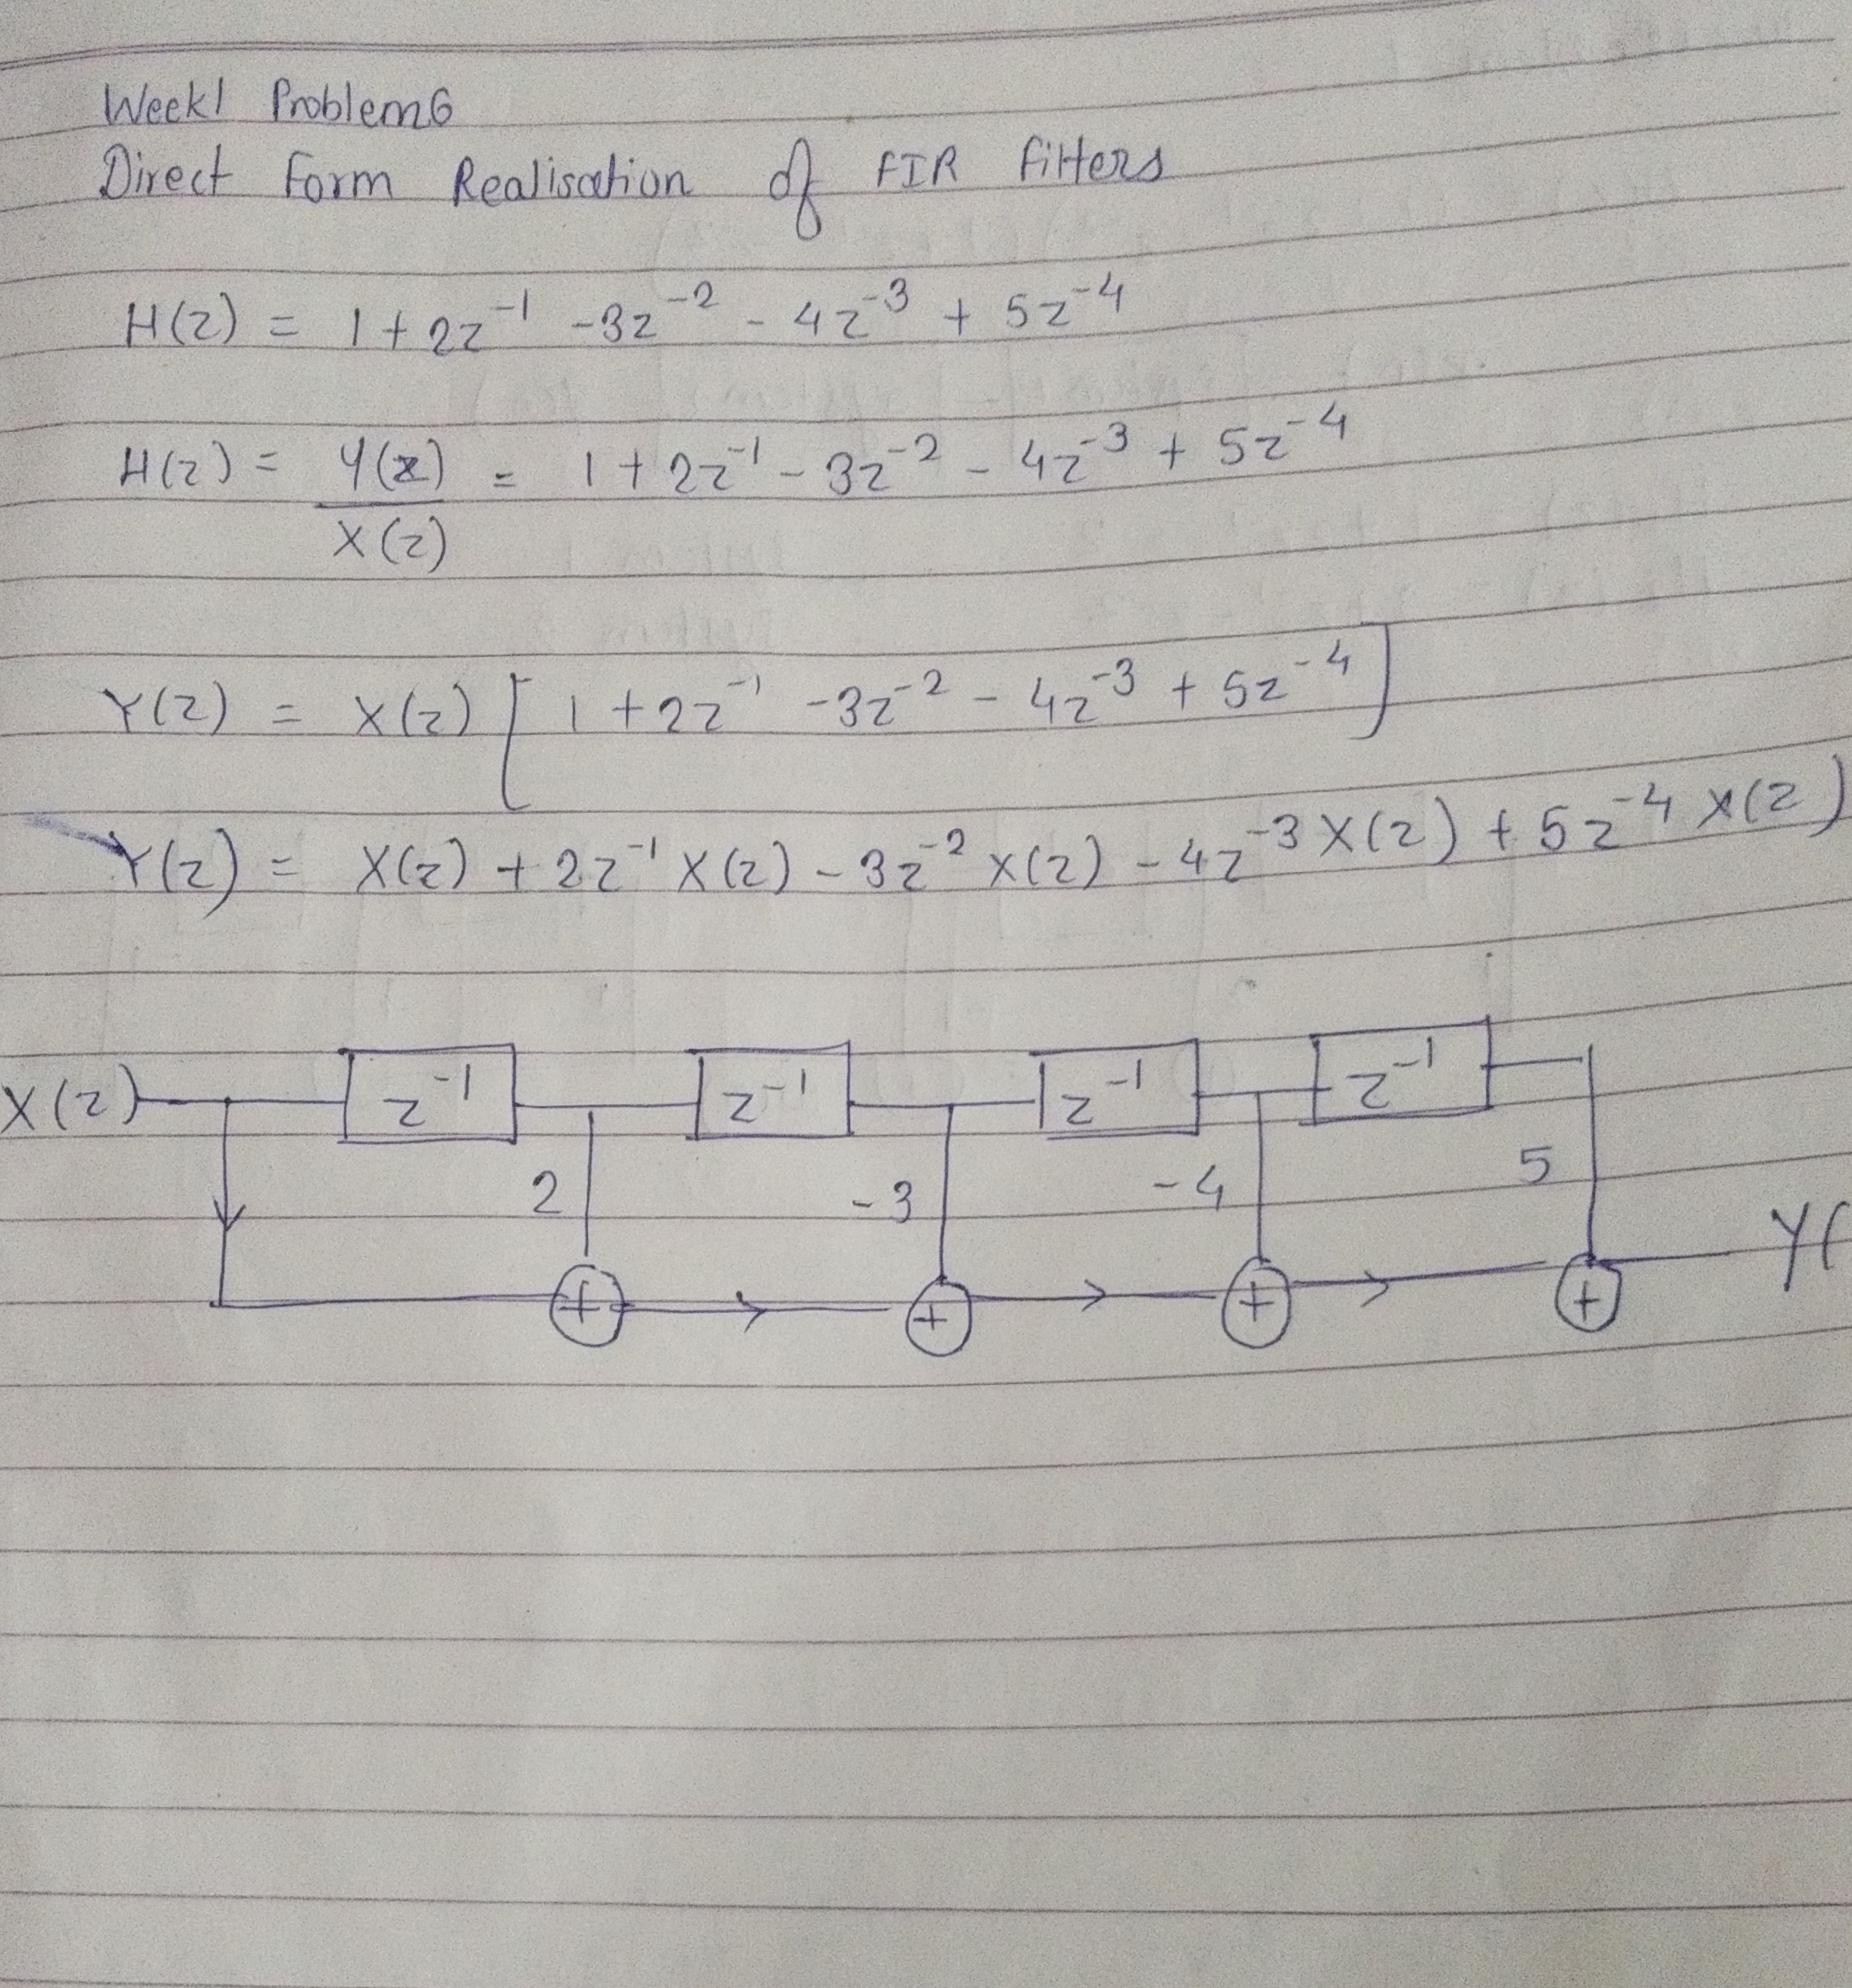 Week1 Problem6
Direct Form Realisation of FIR Filters
H(z) = 1 + 2z^-1 - 3z^-2 - 4z^-3 + 5z^-4
H(z) = Y(z)/X(z) = 1 + 2z^-1 - 3z^-2 - 4z^-3 + 5z^-4
Y(z) = X(z) [ 1 + 2z^-1 - 3z^-2 - 4z^-3 + 5z^-4 ]
Y(z) = X(z) + 2z^-1 X(z) - 3z^-2 X(z) - 4z^-3 X(z) + 5z^-4 X(z)
X(z) z^-1 z^-1 z^-1 z^-1
2 -3 -4 5
+ + + + Y(